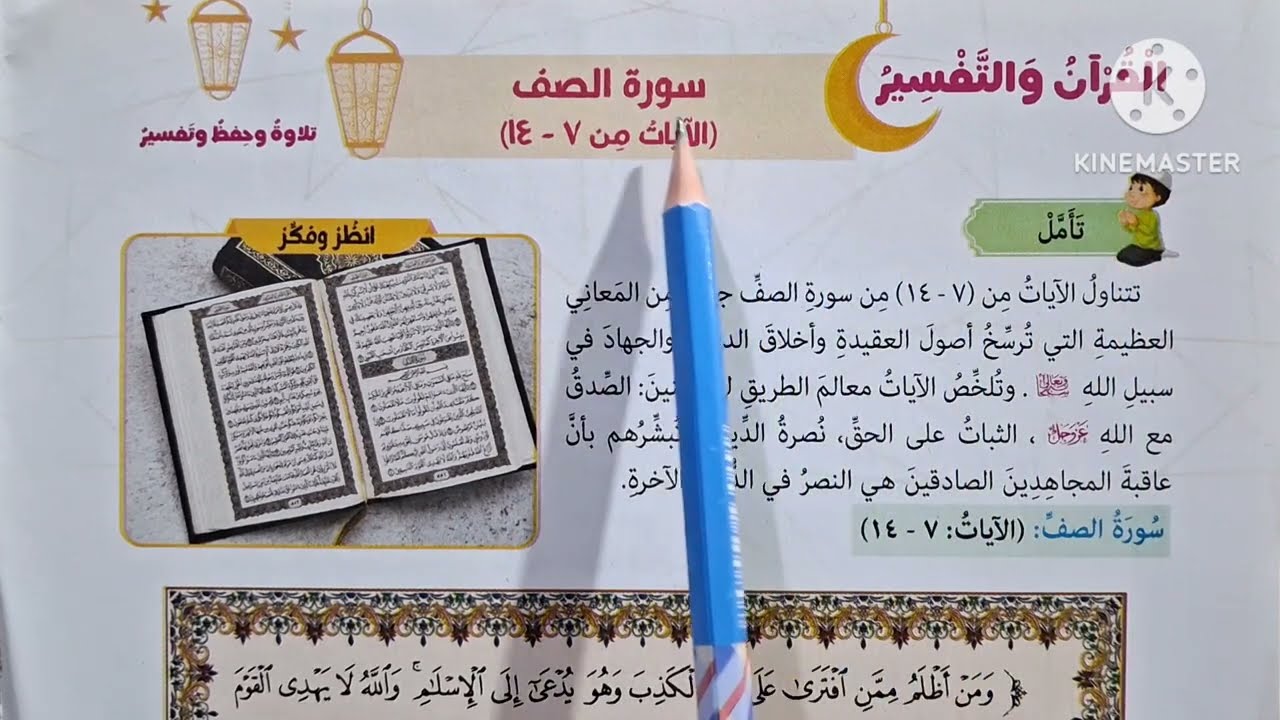 القُرْآنُ وَالتَّفْسِيرُ
سورة الصف
(الآياتُ مِن ٧ - ١٤)
تلاوةٌ وحِفظٌ وتَفسيرٌ
KINEMASTER
تَأَمَّلْ
انظُرْ وفَكِّرْ
تتناولُ الآياتُ مِن (٧ - ١٤) مِن سورةِ الصفِّ مِن المَعانِي
العظيمةِ التي تُرسِّخُ أصولَ العقيدةِ وأخلاقَ والجهادَ في
سبيلِ اللهِ . وتُلخِّصُ الآياتُ معالمَ الطريقِ الصِّدقُ
مع اللهِ عَزَّوَجَلَّ ، الثباتُ على الحقِّ، نُصرةُ بأنَّ
عاقبةَ المجاهِدِينَ الصادقينَ هي النصرُ في الآخرةِ.
سُورَةُ الصفِّ: (الآياتُ: ٧ - ١٤)
﴿ وَمَنْ أَظْلَمُ مِمَّنِ ٱفْتَرَىٰ ٱلْكَذِبَ وَهُوَ يُدْعَىٰٓ إِلَى ٱلْإِسْلَٰمِ ۚ وَٱللَّهُ لَا يَهْدِى ٱلْقَوْمَ